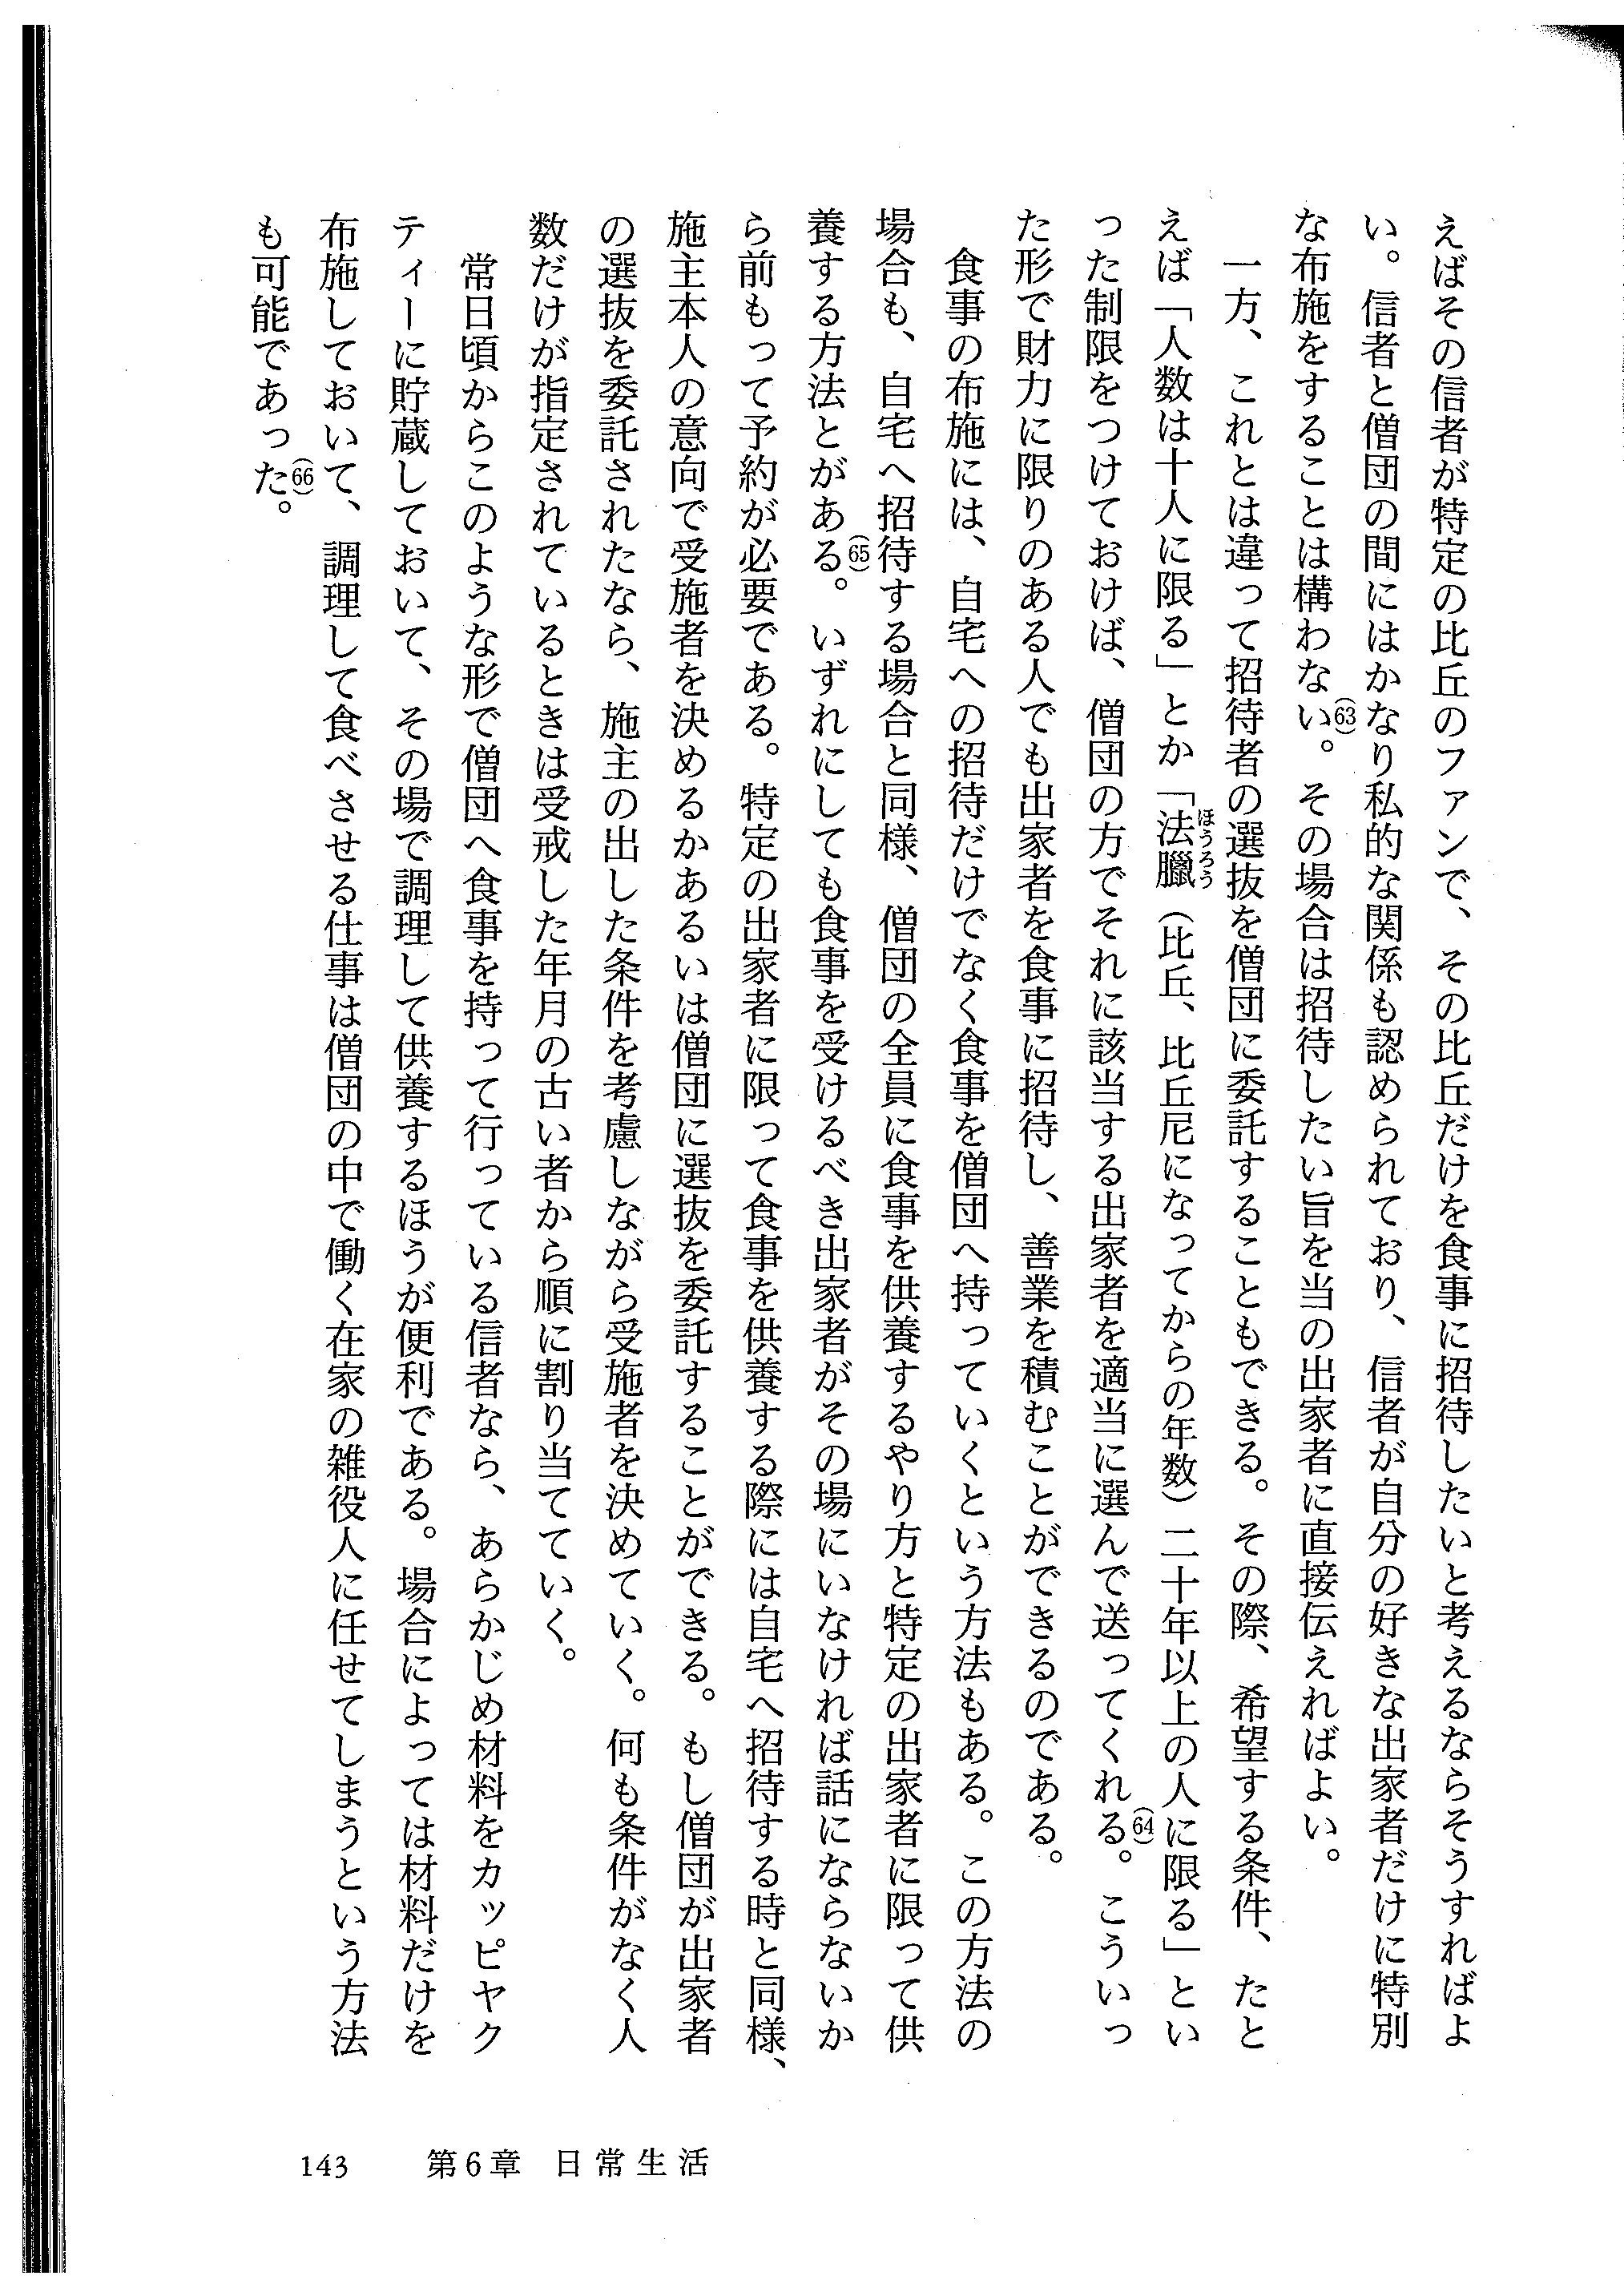 えばその信者が特定の比丘のファンで、その比丘だけを食事に招待したいと考えるならそうすればよ
い。信者と僧団の間にはかなり私的な関係も認められており、信者が自分の好きな出家者だけに特別
な布施をすることは構わない(63)。その場合は招待したい旨を当の出家者に直接伝えればよい。
一方、これとは違って招待者の選抜を僧団に委託することもできる。その際、希望する条件、たと
えば「人数は十人に限る」とか「法臘ほうろう（比丘、比丘尼になってからの年数）二十年以上の人に限る」とい
った制限をつけておけば、僧団の方でそれに該当する出家者を適当に選んで送ってくれる(64)。こういっ
た形で財力に限りのある人でも出家者を食事に招待し、善業を積むことができるのである。
食事の布施には、自宅への招待だけでなく食事を僧団へ持っていくという方法もある。この方法の
場合も、自宅へ招待する場合と同様、僧団の全員に食事を供養するやり方と特定の出家者に限って供
養する方法とがある(65)。いずれにしても食事を受けるべき出家者がその場にいなければ話にならないか
ら前もって予約が必要である。特定の出家者に限って食事を供養する際には自宅へ招待する時と同様、
施主本人の意向で受施者を決めるかあるいは僧団に選抜を委託することができる。もし僧団が出家者
の選抜を委託されたなら、施主の出した条件を考慮しながら受施者を決めていく。何も条件がなく人
数だけが指定されているときは受戒した年月の古い者から順に割り当てていく。
常日頃からこのような形で僧団へ食事を持って行っている信者なら、あらかじめ材料をカッピヤク
ティーに貯蔵しておいて、その場で調理して供養するほうが便利である。場合によっては材料だけを
布施しておいて、調理して食べさせる仕事は僧団の中で働く在家の雑役人に任せてしまうという方法
も可能であった(66)。
143 第6章 日常生活